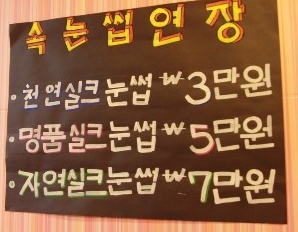 속눈썹연장
·천연실크눈썹 ₩3만원
·명품실크눈썹 ₩5만원
·자연실크눈썹 ₩7만원